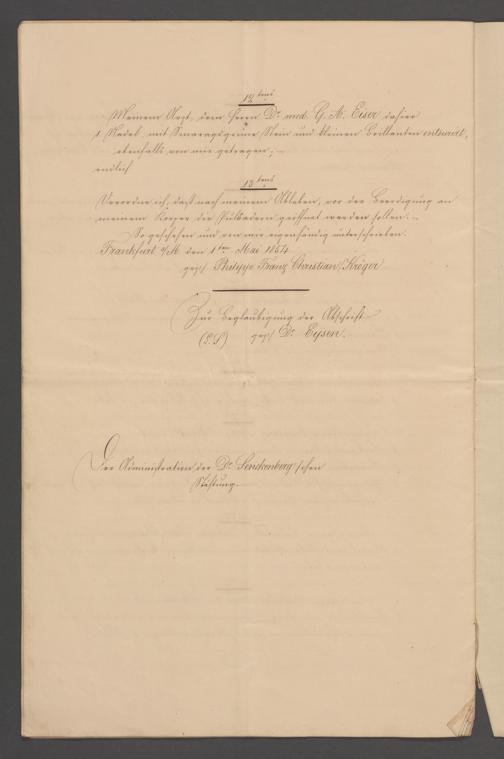 12tens
Meinem Arzt, dem Herrn Dr. med. G. A. Eiser dahier
1 Nadel, mit Smaragdgrünem Stein und kleinen Brillanten entourirt,
ebenfalls von mir getragen; –
endlich
13tens
Verordne ich, daß nach meinem Ableben, vor der Beerdigung an
meinem Körper die Pulsadern geöffnet werden sollen. –
So geschehen und von mir eigenhändig unterschrieben.
Frankfurt a/M. den 1ten Mai 1854
gez/ Philipp Franz Christian Krüger
Zur Beglaubigung der Abschrift
(L.S.) gez/ Dr. Eysen.
Der Administration der Dr. Senckenberg'schen
Stiftung.